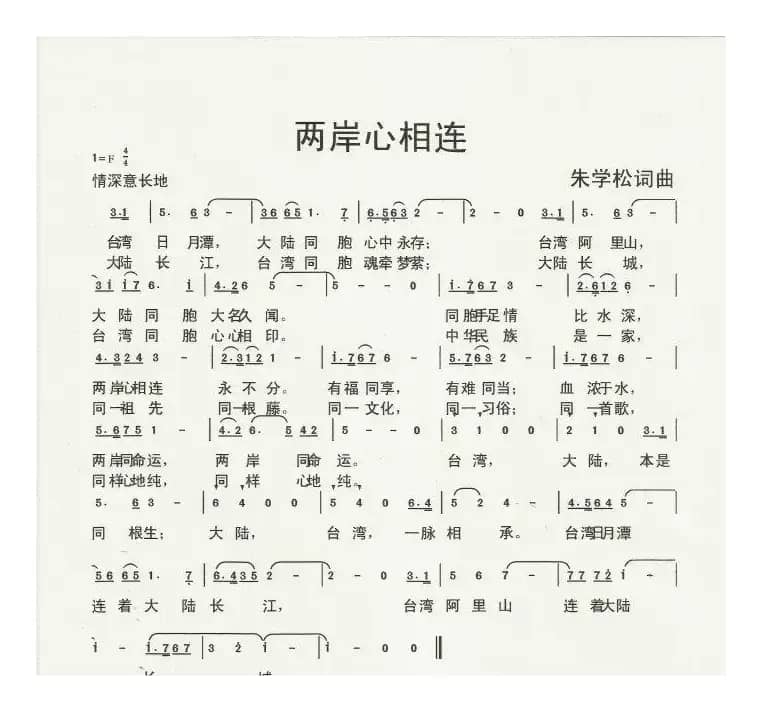 两岸心相连
1=F 4/4
情深意长地
朱学松词曲
3.1 | 5. 6 3 - | 36 65 1. 7 | 6.563 2 - | 2 - 0 3.1 | 5. 6 3 - |
台湾 日 月潭， 大 陆 同 胞 心中 永存； 台湾 阿 里山，
大陆 长 江， 台 湾 同 胞 魂牵 梦萦； 大陆 长 城，
3i i7 6. i | 4.26 5 - | 5 - - 0 | i.767 3 - | 2.612 6 - |
大 陆 同 胞 大名久 闻。 同胞手足情 比 水 深，
台 湾 同 胞 心心相 印。 中华民 族 是 一 家，
4.3243 - | 2.312 1 - | i.767 6 - | 5.763 2 - | i.767 6 - |
两岸心相连 永 不 分。 有福 同享， 有难 同当； 血 浓于水，
同一祖 先 同一根 藤。 同一 文化， 同一习俗； 同 一首歌，
5.675 1 - | 4.2 6. 5 42 | 5 - - 0 | 3 1 0 0 | 2 1 0 3.1 |
两岸同命运， 两 岸 同命 运。 台 湾， 大 陆， 本是
同样心地纯， 同 样 心地 纯。
5. 6 3 - | 6 4 0 0 | 5 4 0 6.4 | 5 2 4 - | 4.564 5 - |
同 根生； 大 陆， 台 湾， 一脉 相 承。 台湾日月潭
56 65 1. 7 | 6.435 2 - | 2 - 0 3.1 | 5 6 7 - | 77 72 i - |
连 着 大 陆 长 江， 台湾 阿 里 山 连 着大陆
i - i.767 | 3 2 i - | i - 0 0 ‖
长 城。